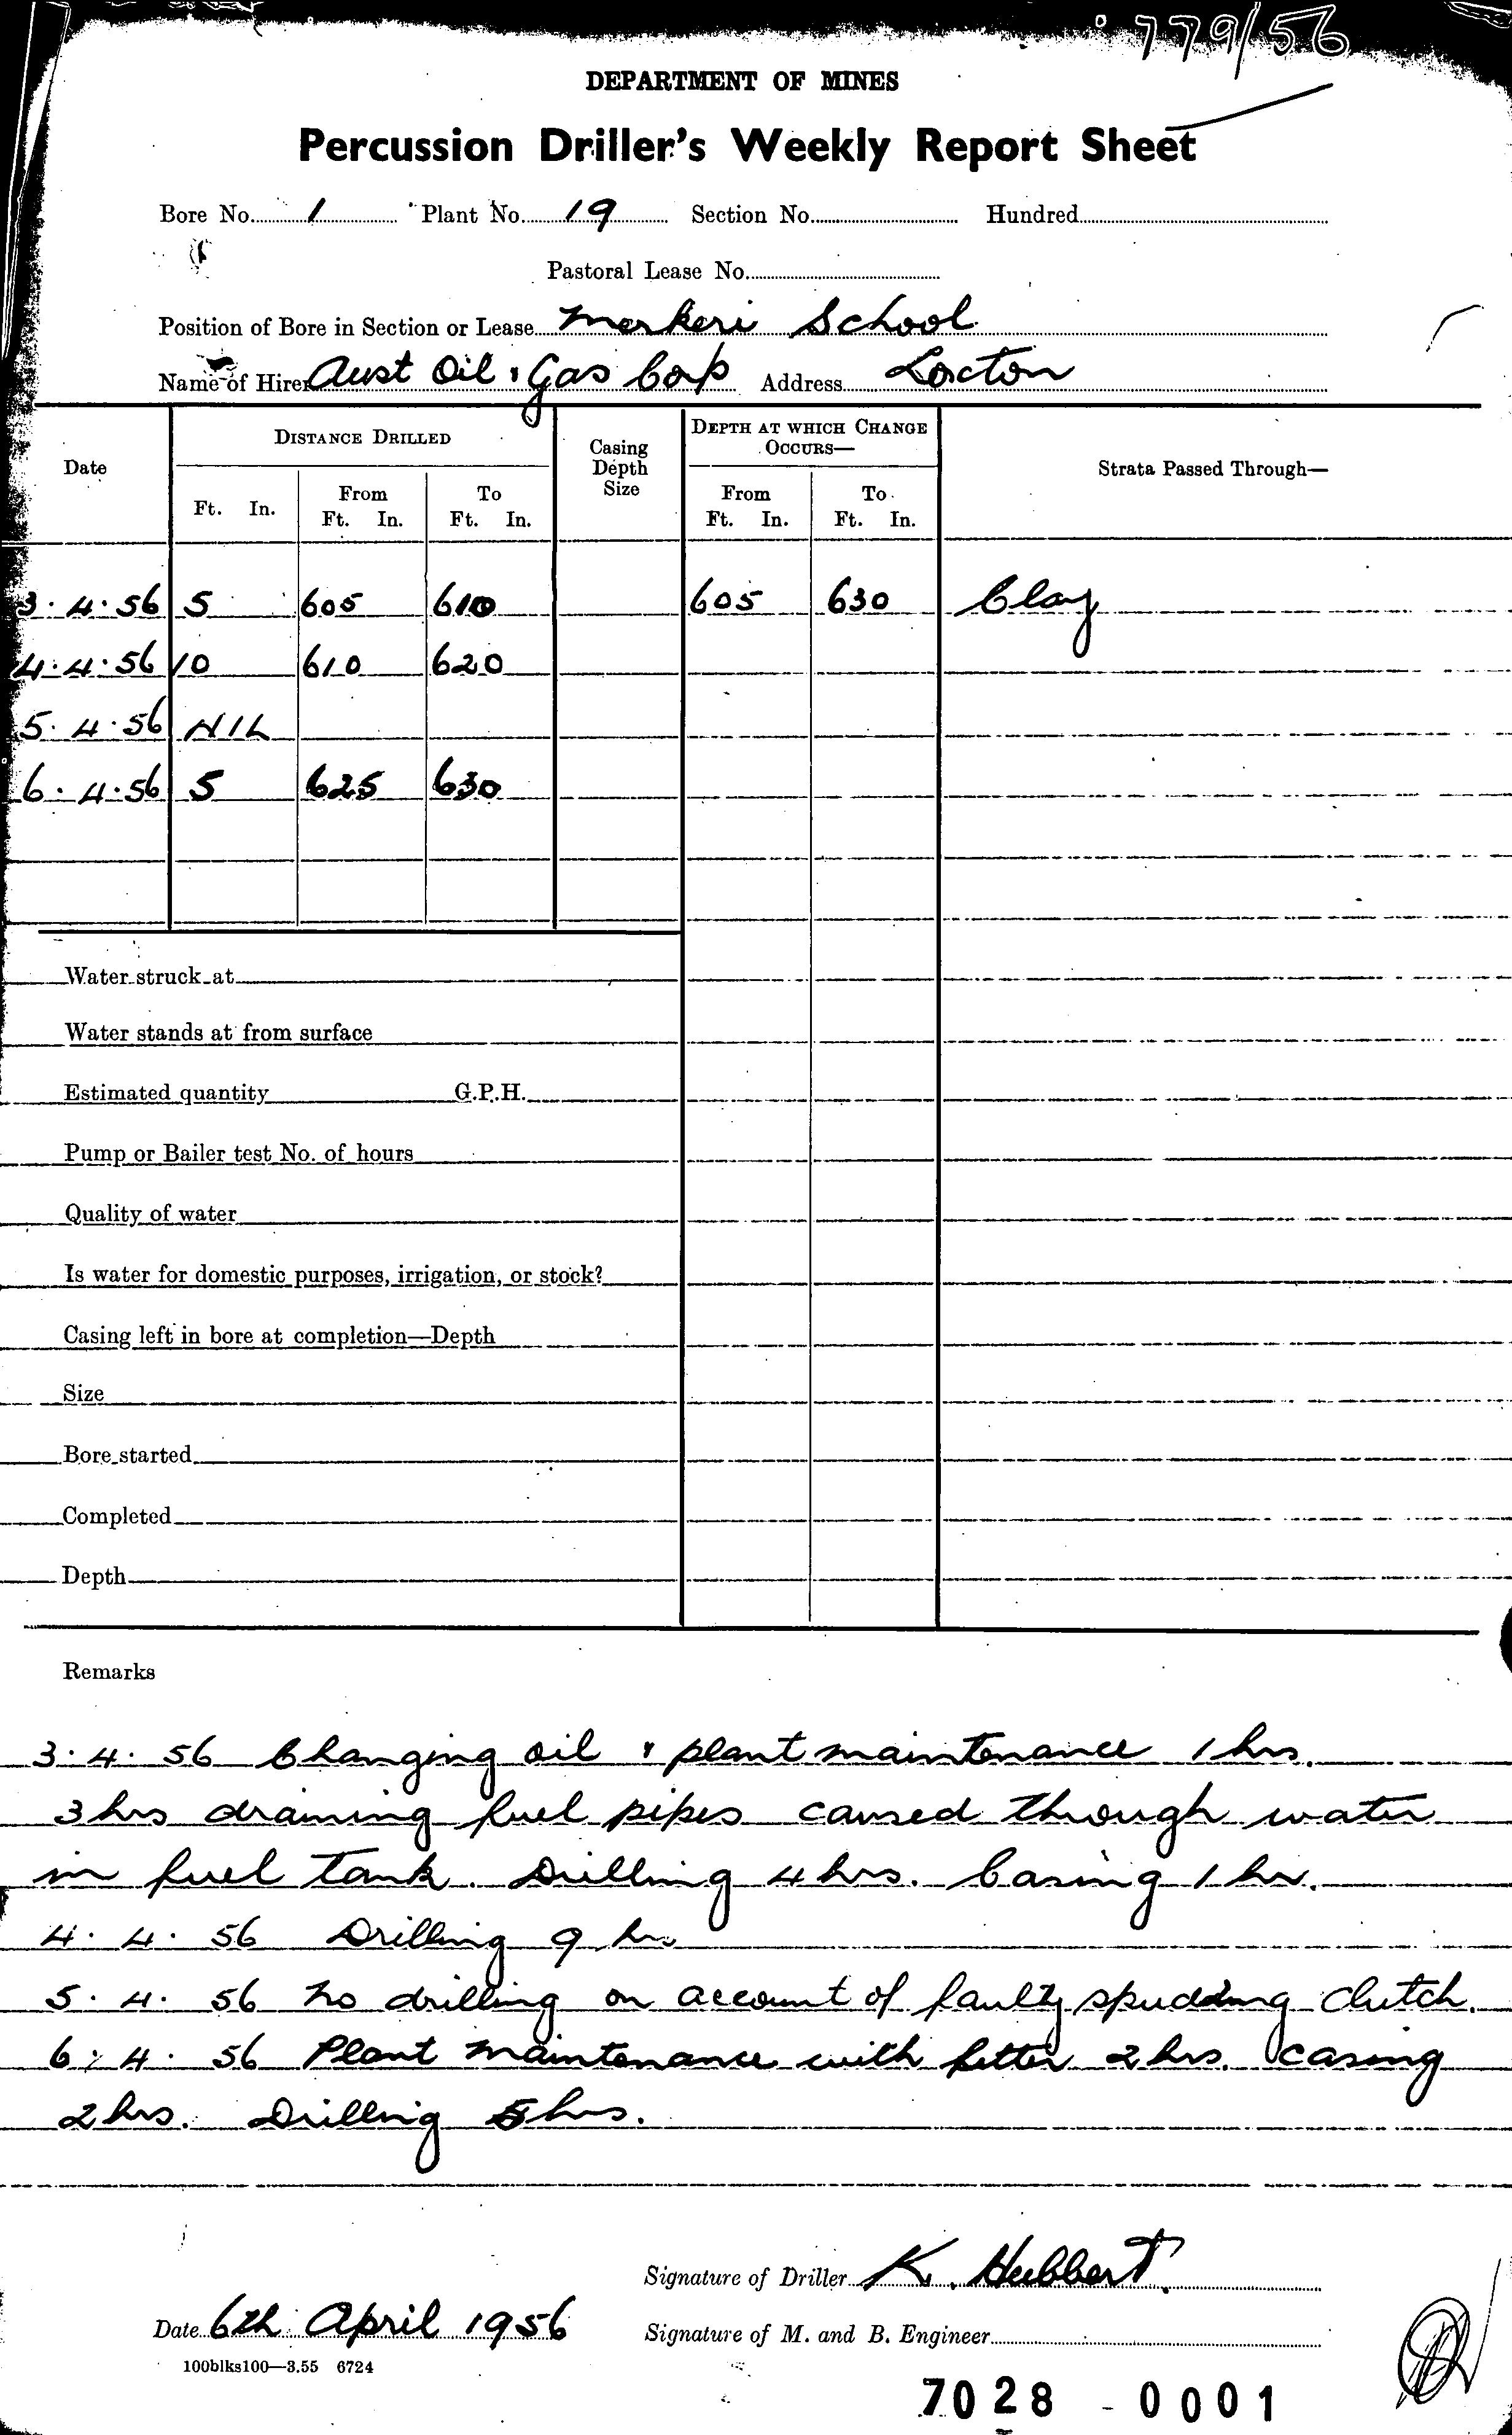 779/56
DEPARTMENT OF MINES
Percussion Driller's Weekly Report Sheet
Bore No. 1 Plant No. 19 Section No. Hundred
Pastoral Lease No.
Position of Bore in Section or Lease Merkeri School
Name of Hirer Aust Oil & Gas Corp Address Loxton
Date DISTANCE DRILLED Casing Depth Size DEPTH AT WHICH CHANGE OCCURS— Strata Passed Through—
Ft. In. From Ft. In. To Ft. In. From Ft. In. To Ft. In.
3.4.56 5 605 610 605 630 Clay
4.4.56 10 610 620
5.4.56 NIL
6.4.56 5 625 630
Water struck at
Water stands at from surface
Estimated quantity G.P.H.
Pump or Bailer test No. of hours
Quality of water
Is water for domestic purposes, irrigation, or stock?
Casing left in bore at completion—Depth
Size
Bore started
Completed
Depth
Remarks
3.4.56 Changing oil & plant maintenance 1 hrs.
3 hrs draining fuel pipes caused through water
in fuel tank. Drilling 4 hrs. Casing 1 hr.
4.4.56 Drilling 9 hrs
5.4.56 No drilling on account of faulty spudding clutch.
6.4.56 Plant maintenance with fitter 2 hrs. Casing
2 hrs. Drilling 5 hrs.
Signature of Driller K. Hubbert
Date 6th April 1956 Signature of M. and B. Engineer
100blks100—3.55 6724
7028 - 0001